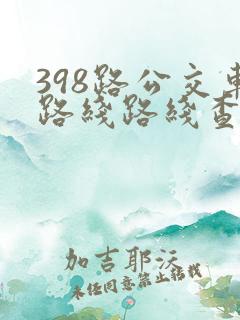 398路公交车
路线路线查
加吉耶沃
未经同意禁止转载